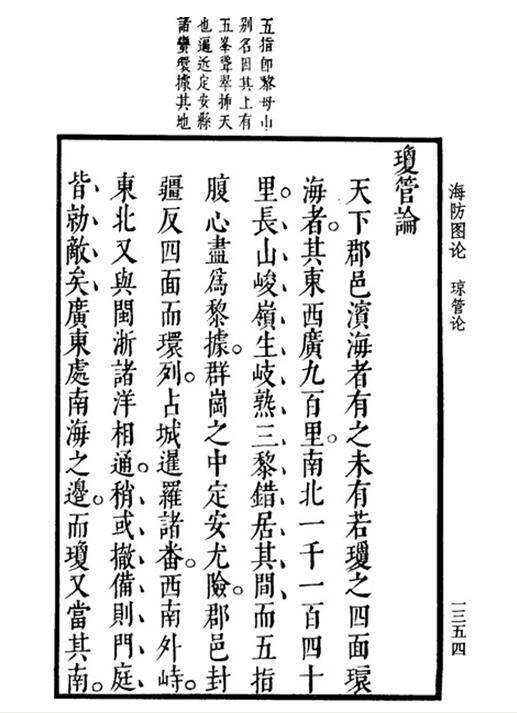 海防图论 琼管论
一三五四
五指即黎母山
别名因其上有
五峯聳翠挿天
也逼近定安縣
諸蠻環據其地
瓊管論
天下郡邑濱海者有之未有若瓊之四面環
海者。其東西廣九百里。南北一千一百四十
里。長山峻嶺生岐熟三黎錯居其間而五指
腹心盡爲黎據。群崗之中定安尤險。郡邑封
疆反四面而環列。占城暹羅諸番。西南外峙。
東北又與閩浙諸洋相通。稍或撤備則門庭
皆勍敵矣。廣東處南海之邊。而瓊又當其南。